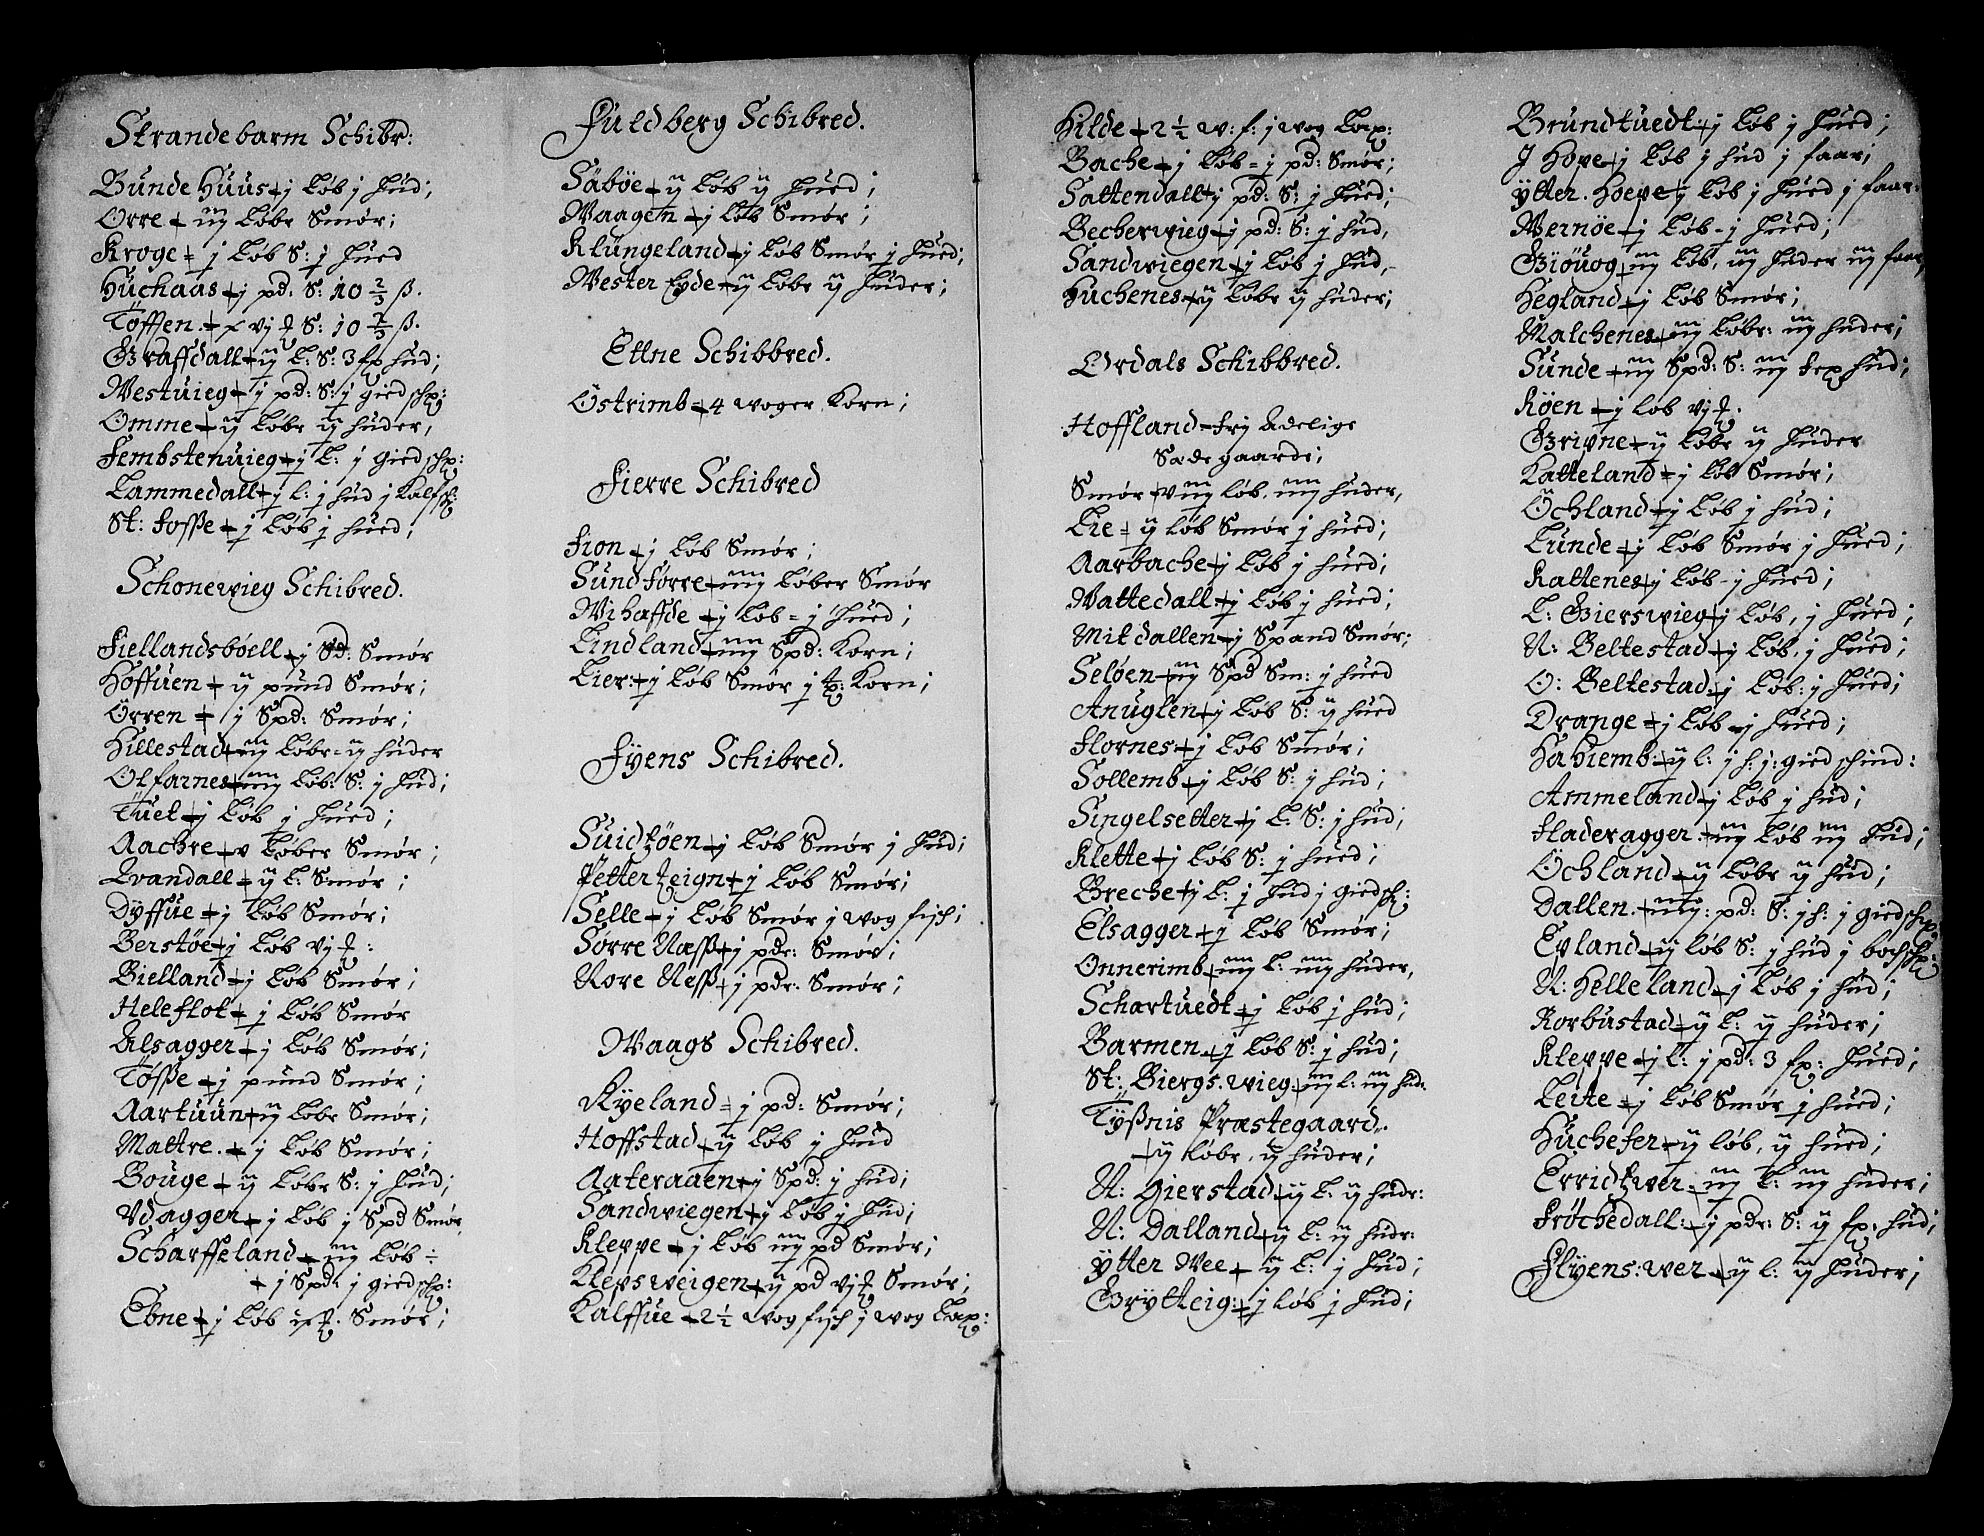 Strandebarm Schibr:
Bunde Huus - j Løb j Hud;
Orre - iiij Løbr Smør;
Kroge = j Løb S: j Hued
Huchaas - j pd: S: 10 2/3 ß.
Toffen. - vj S: 10 2/3 ß.
Graffdall - ij L: S: 3 fp hud;
Westuieg - j pd: S: j giedschp:
Omme - ij Løbr ij huder,
Fembstenuieg - j L: j giedschp:
Lammedall - j l: j hud j Kalfsch:
St: Fosse - j Løb j hued;
Schonewieg Schibred.
Fiellandsbóell - j Sd: Smør
Hoffuen - ij pund Smør;
Örren - j Spd: Smør;
Hillestad - iij Løbr = ij huder
Olfarnes - iiij Løb: S: j Hud;
Tuet - j Løb j Hued;
Aachre - v Løber Smør;
Qvandall - ij L: Smør;
Dyffue - j Løb Smør;
Berstøe - j Løb vj :
Bielland - j Løb Smør;
Heleflot - j Løb Smør
Alsagger - j Løb Smør;
Tøsse - j pund Smør;
Aartuun - ij Løbr Smør;
Mattre. - j Løb Smør;
Bouge - ij Løbr S: j Hud;
Vdagger - j Løb j Spd Smør
Scharffeland - iij Løb ÷
- j Spd: j giedschp:
Ebne - j Løb Smør;
Fuldberg Schibred.
Säbøe - ij Løb ij Hued;
Waagen - j Løb Smør;
Klungeland - j Løb Smør j Hued;
Wester Eyde - ij Løbr ij Huder;
Ettne Schibbred.
Östrimb - 4 woger Korn;
Fierre Schibred
Fion - j Løb Smør;
Sund Førre - iiij Løber Smør
Wihaffde - j Løb = j Hued;
Lindland - iiij Spd: Korn;
Lier: - j Løb Smør j tp: Korn;
Fyens Schibred.
Suidtzöen - j Løb Smør j Hud;
Petterteign - j Løb Smør;
Selle - j Løb Smør j wog fisch;
Sørre Næss - j pdr: Smør;
Nore Ness - j pdr: Smør;
Waags Schibred.
Ryeland = j pd: Smør;
Hoffstad - ij Løb j Hud
Aateraaen - j Spd: j Hud;
Sandwiegen - j Løb j Hud;
Kleppe - j Løb iij pd Smør;
Klepsweigen - ij pd vj Smør;
Kalffue - 2½ wog fisch j wog Lax:
Hilde - 2½ w: f: j wog Lax:
Bache - j Løb = j pd: Smør;
Sattendall - j pd: S: j Hued;
Becherwieg - j pd: S: j Hud,
Sandwiegen - j Løb j Hud,
Huchenes - ij Løbr ij huder;
Ordals Schibbred.
Hoffland - frj Adelige
Sædegaarde;
Smør - viij løb, iiij huder,
Lie = ij løb Smør j hued;
Aarbache - j Løb j hued;
Wattedall - j Løb j hued;
Mitdallen - j Spand Smør;
Seløen - iij Spd Sm: j hued
Anuglen - j Løb S: ij hued
Flornes - j Løb Smør;
Sollemb - j Løb S: j hud;
Singelsetter - j L: S: j hud;
Klette - j Løb S: j hued;
Breche - j L: j Hud j giedsch:
Elsagger - j Løb Smør;
Onnerimb - iiij L: iiij huder,
Schartuedt - j Løb j hud;
Barmen - j Løb S: j hud;
St: Biergs. wieg - iij L: iij hud:
Tyßnis Præstegaard.
- ij Løbr, ij huder;
N: Gierstad - ij L: ij hudr:
N: Dalland - ij L: ij hudr:
ytter Vee - ij L: j Hud;
Grytteig: - j Løb j Hud;
Brundtuedt - j Løb j Hued;
J Hope - j Løb j hud j faar;
ytter. Hoepe - j Løb j Hued j faar:
Wernöe - j Løb - j Hued;
Giöuog - iij Løb, iij Huder iij faar,
Hegland - j Løb Smør;
Malchenes - iij Løbr: iij huder;
Sunde - iij Spd: S: iij fexhud;
Köen - j Løb vj .
Gripne - ij Løbr ij Huder
Katteland = j Løb Smør;
Öchland - j Løb j Hud;
Lunde - j Løb Smør j Hued;
Kattenes - j Løb - j Hued;
L: Gierswieg - j Løb, j Hued;
N: Beltestad - j Løb, j Hued;
O: Beltestad - j Løb: j Hued;
Drange - j Løb - j Hued;
Hahiemb - ij L: j h: j: giedschind:
Ammeland - j Løb j Hud;
Fladeragger - iij Løb iij Hud;
Öchland - ij Løbr ij Hud;
Dallen. - iiij: pd: S: j h: j giedschp:
Epland - ij Løb S: j hud j bochschp:
N: Helleland - j Løb j Hud;
Rorbustad - ij L: ij Huder;
Kleppe - j L: j pd: 3 fp: Hued;
Leite - j Løb Smør j Hued;
Huchefer - ij løb, ij Hued;
Erridtzwer - iij L: iij huder;
Frøchedall: - j pdr: S: ij fp. hud;
Flyens: wer - ij L: ij Huder;